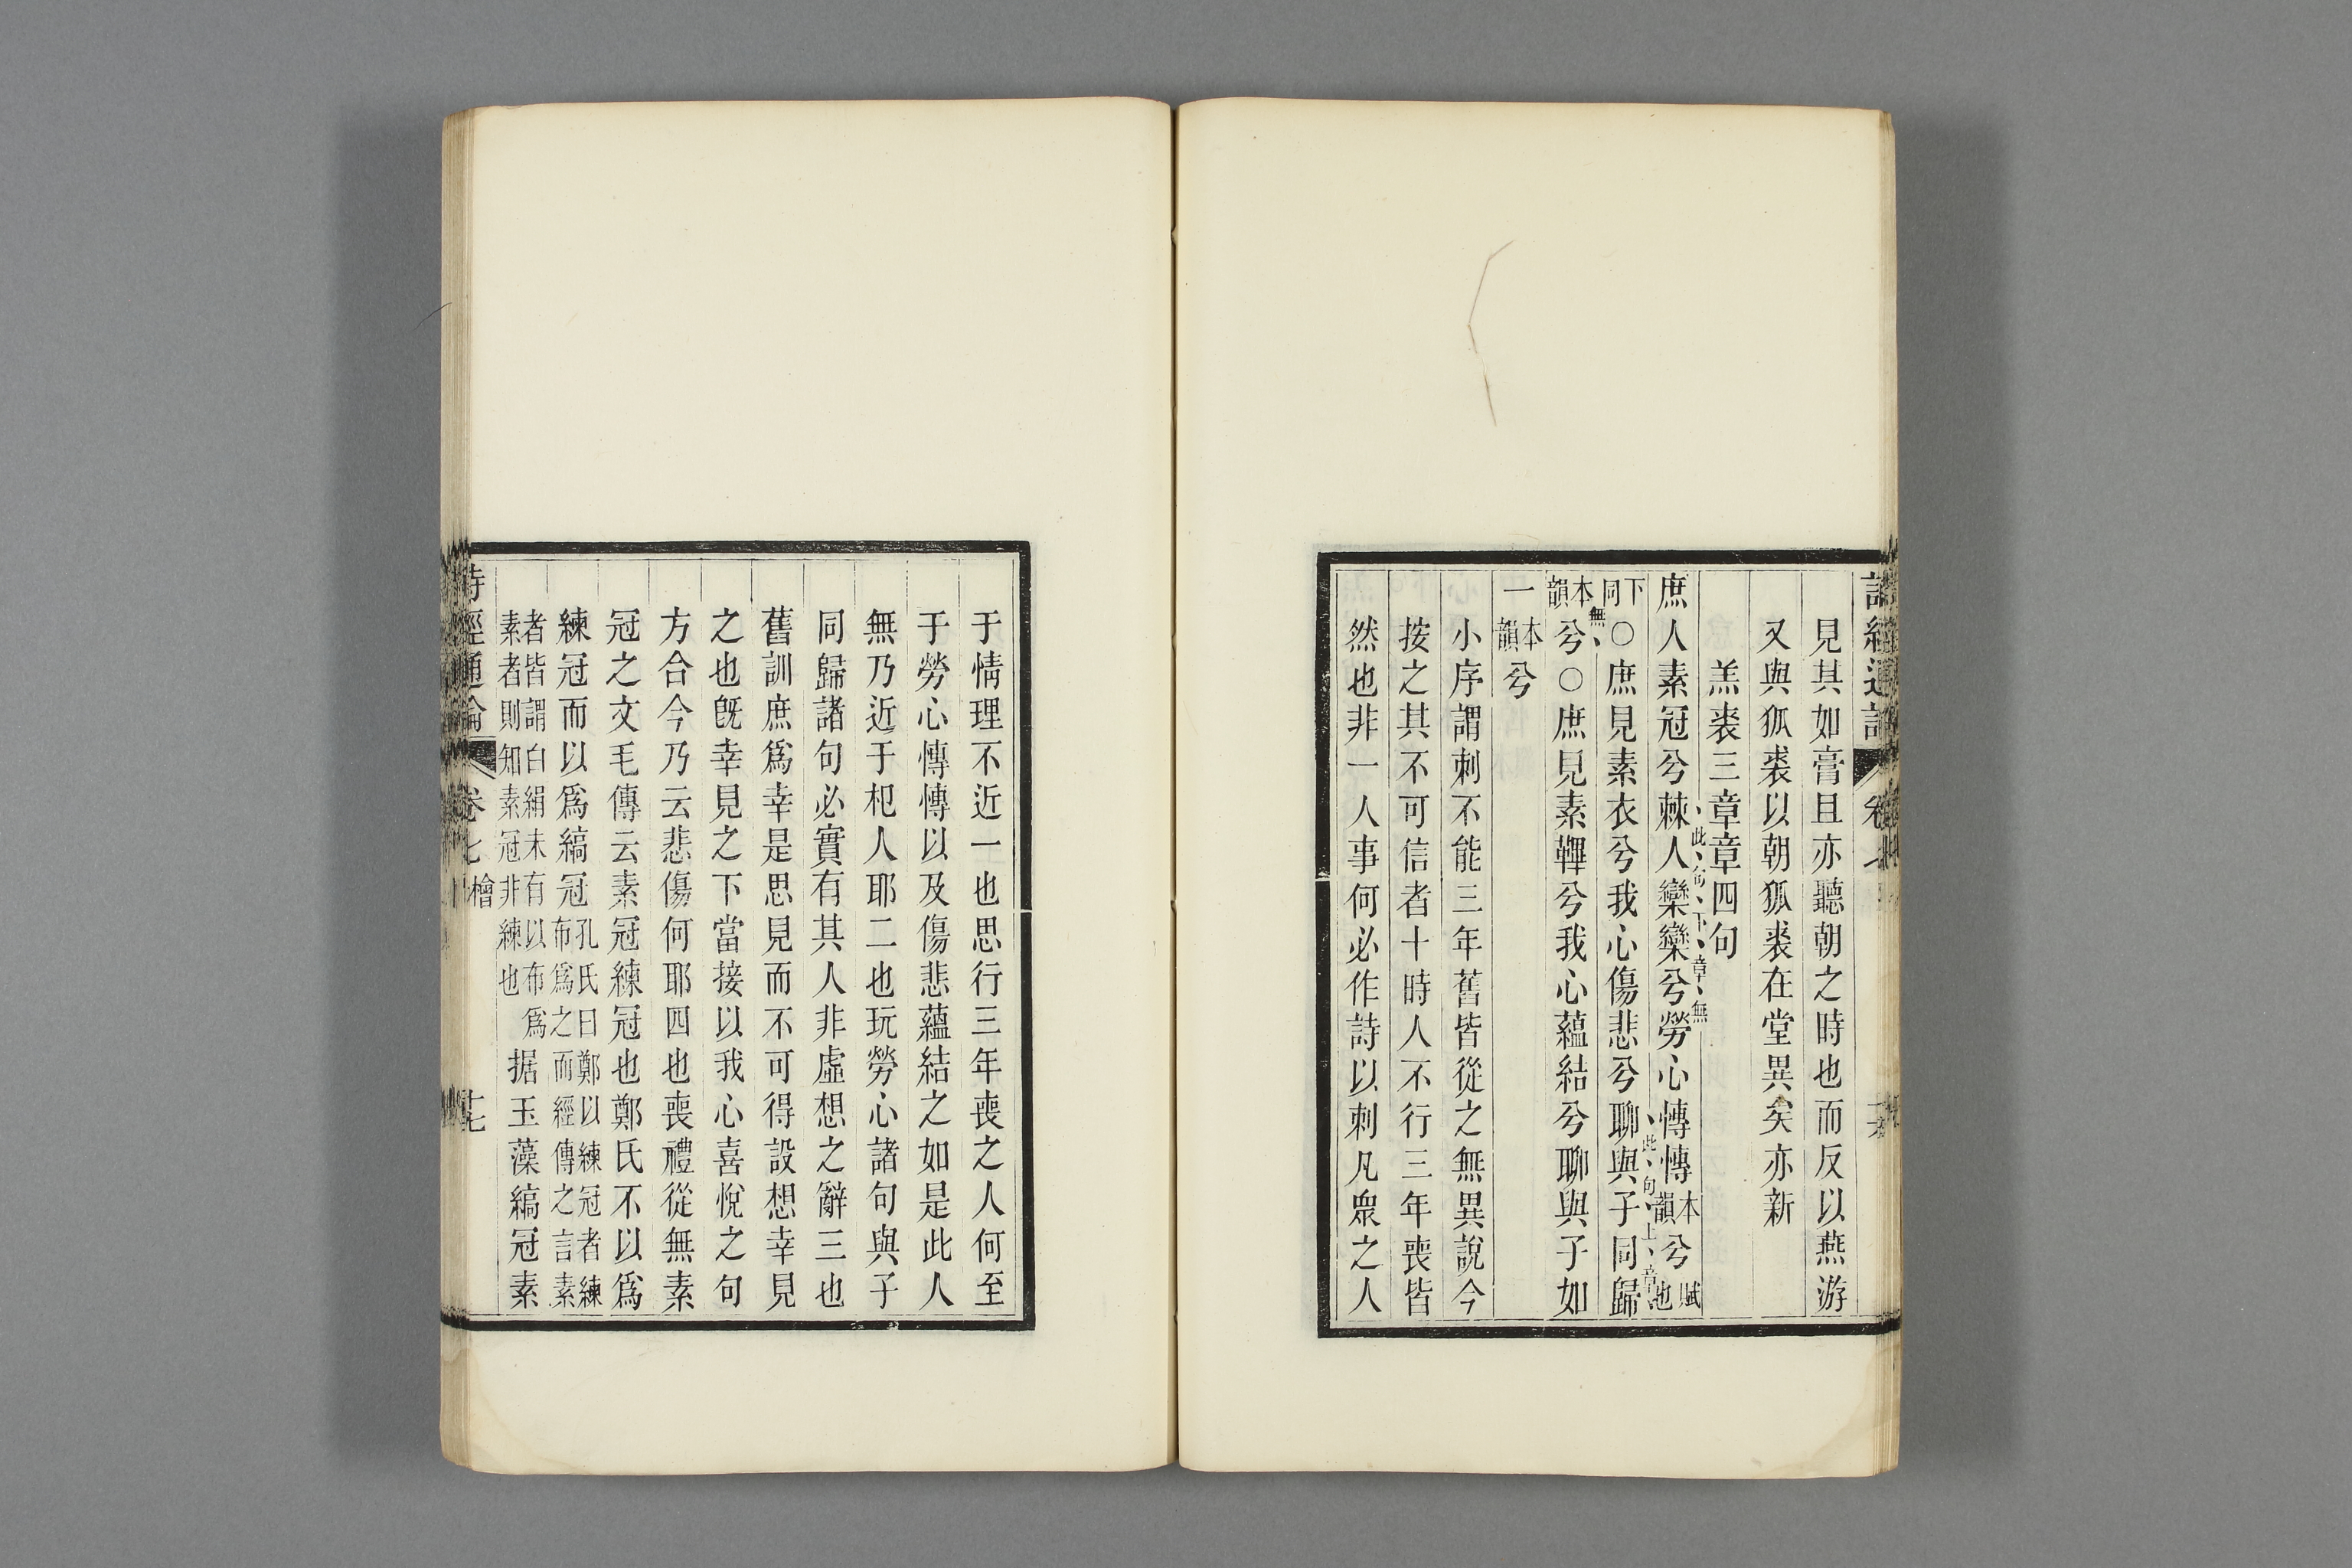 見其如膏且亦聽朝之時也而反以燕游
又與狐裘以朝狐裘在堂異矣亦新
羔裘三章章四句
庶人素冠兮棘人欒欒兮勞心慱慱本韻兮賦也
此句下章無
下同○庶見素衣兮我心傷悲兮聊與子同歸
此句上章
本韻兮○庶見素韠兮我心蘊結兮聊與子如
無
一本韻兮
小序謂刺不能三年舊皆從之無異說今
按之其不可信者十時人不行三年喪皆
然也非一人事何必作詩以刺凡眾之人
于情理不近一也思行三年喪之人何至
于勞心慱慱以及傷悲蘊結之如是此人
無乃近于杞人耶二也玩勞心諸句與子
同歸諸句必實有其人非虛想之辭三也
舊訓庶為幸是思見而不可得設想幸見
之也旣幸見之下當接以我心喜悅之句
方合今乃云悲傷何耶四也喪禮從無素
冠之文毛傳云素冠練冠也鄭氏不以為
練冠而以為縞冠孔氏曰鄭以練冠者練布為之而經傳之言素
者皆謂白絹未有以布為素者則知素冠非練也据玉藻縞冠素
詩經通論 卷七 檜 十七